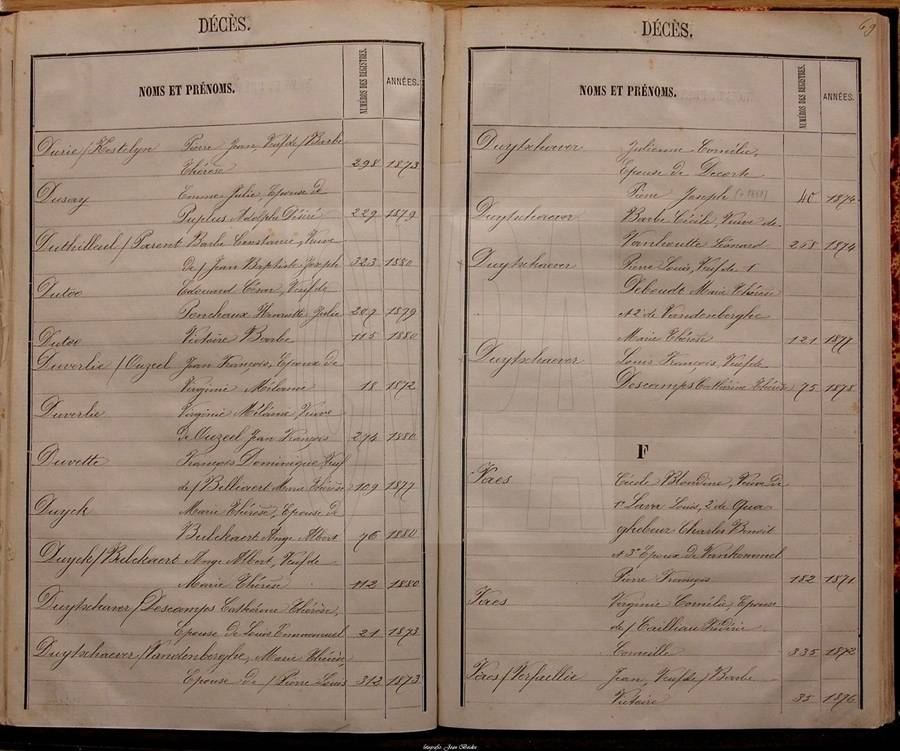 DÉCÈS.
NOMS ET PRÉNOMS.
NUMÉROS DES REGISTRES.
ANNÉES.
Durie / Hostelyn Pierre Jean, Veuf de / Barbe
Thérèse 298 1873
Dusay Emma Julie, Epouse de
Puplus Adolphe Désiré 229 1879
Duthilleul / Parent Barbe Constance, Veuve
de / Jean Baptiste Joseph 323 1880
Dutoo Edouard César, Veuf de
Ponchaux Henriette Julie 207 1879
Dutoo Victoire Barbe 115 1880
Duverlie / Ouzeel Jean François, Epoux de
Virginie Mélanie 18 1872
Duverlie Virginie Mélanie Veuve
de Ouzeel Jean François 274 1880
Duvette François Dominique, Veuf
de / Belliaert Marie Thérèse 109 1877
Duyck Marie Thérèse, Epouse de
Bulckaert Ange Albert 76 1880
Duyck / Bulckaert Ange Albert, Veuf de
Marie Thérèse 112 1880
Duytschaver / Descamps Catherine Thérèse,
Epouse de Louis Emmanuel 21 1873
Duytschaever / Vandenberghe, Marie Thérèse,
Epouse de / Pierre Louis 312 1873
DÉCÈS.
69
NOMS ET PRÉNOMS.
NUMÉROS DES REGISTRES.
ANNÉES.
Duytschaever Julienne Cornélie,
Epouse de Decorte
Pierre Joseph 40 1874
Duytschaever Barbe Cécile, Veuve de
Vanhoutte Léonard 268 1874
Duytschaever Pierre Louis, Veuf de 1
Deboudt Marie Thérèse
et 2 de Vandenberghe
Marie Thérèse 121 1877
Duytschaever Louis François, Veuf de
Descamps Catherine Thérèse 75 1878
F
Faes Cécile Blondine, Veuve de
1° Lava Louis, 2 de Qua
ghebeur Charles Benoit
et 3° Epoux de Vankemmel
Pierre François 182 1871
Faes Virginie Cornélie, Epouse
de / Cailliau
Corneille 335 1872
Faes / Verfaillie Jean, Veuf de / Barbe
Victoire 35 1876
fotografie Jean Beeckx